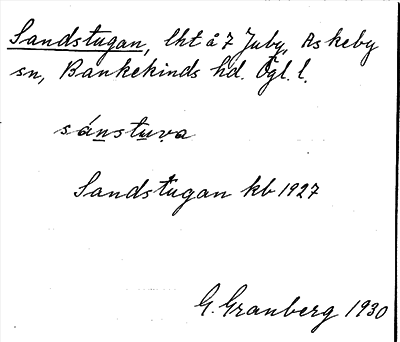 Sandstugan, lht å 7 Juby, Askeby
sn, Bankekinds hd. Ögl. l.
sánstuva
Sandstugan kb 1927
G. Granberg 1930